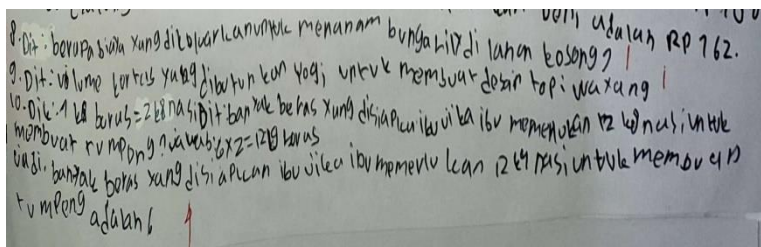 adalah RP 762.
8. Dit: berapa biaya yang dikeluarkan untuk menanam bunga di lahan kosong? 1
9. Dit: volume kertas yang dibutuhkan yogi untuk membuat desain topi wayang 1
10. Dik: 1 kg beras = 2 kg nasi Dit: banyak beras yang disiapkan ibu jika ibu memerlukan 12 kg nasi untuk
membuat tumpeng? jawab: 6 x 2 = 12 kg beras
jadi, banyak beras yang disiapkan ibu jika ibu memerlukan 12 kg nasi untuk membuat
tumpeng adalah 6 4